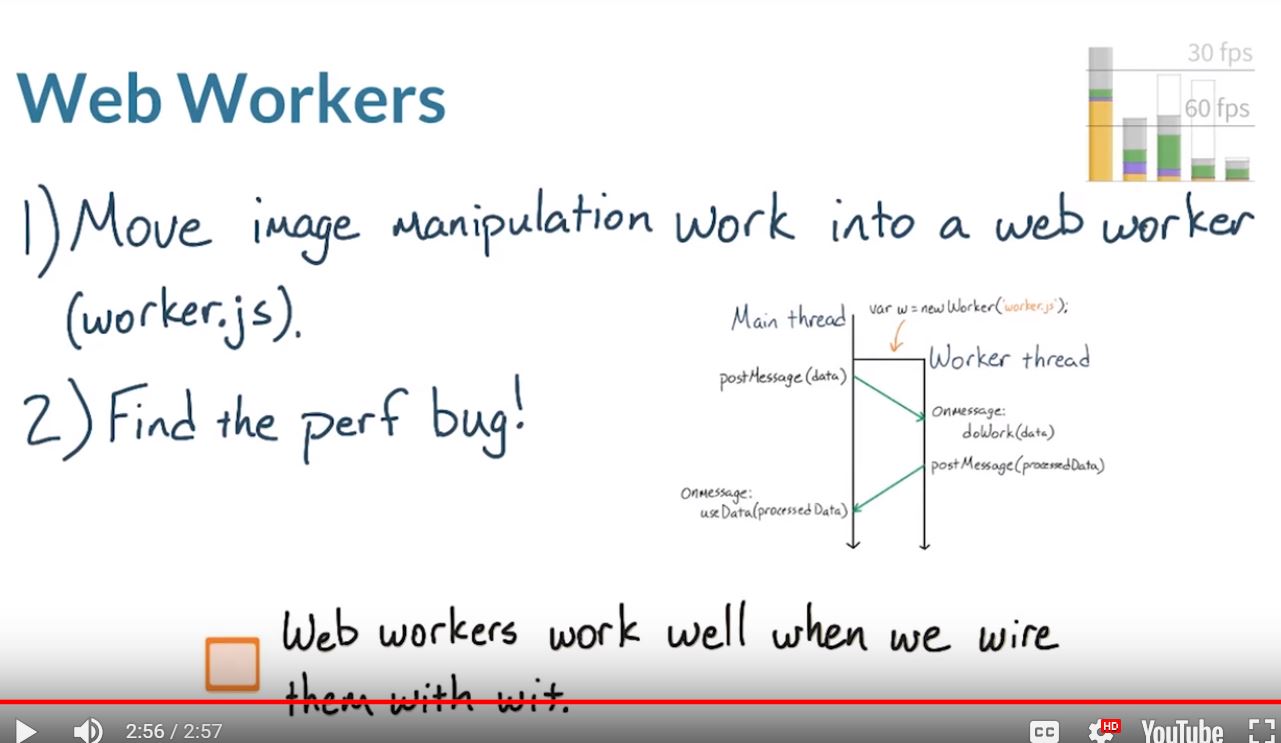 Web Workers
30 fps
60 fps
1) Move image manipulation work into a web worker
(worker.js).
2) Find the perf bug!
Main thread
var w = new Worker('worker.js');
Worker thread
postMessage(data)
OnMessage:
doWork(data)
postMessage(processedData)
OnMessage:
useData(processedData)
Web workers work well when we wire
them with wit.
2:56 / 2:57
CC
HD
YouTube